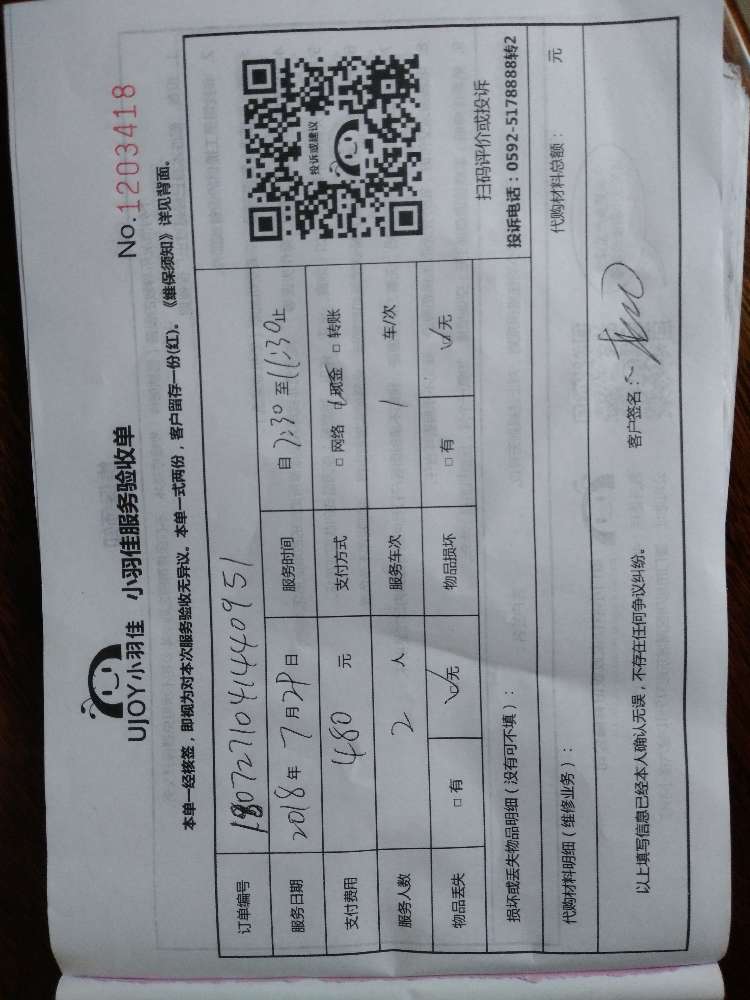 UJOY小羽佳 小羽佳服务验收单
No.1203418
本单一经核签，即视为对本次服务验收无异议。本单一式两份，客户留存一份(红)。《维保须知》详见背面。
订单编号 180727104144 0951
服务日期 2018年7月29日 服务时间 自7:30至11:30止
支付费用 480元 支付方式 □网络 ☑现金 □转账
服务人数 2人 服务车次 1 车/次
物品丢失 □有 ☑无 物品损坏 □有 ☑无
投诉或建议
扫码评价或投诉
投诉电话：0592-5178888转2
损坏或丢失物品明细（没有可不填）：
代购材料明细（维修业务）： 代购材料总额： 元
以上填写信息已经本人确认无误，不存在任何争议纠纷。 客户签名：